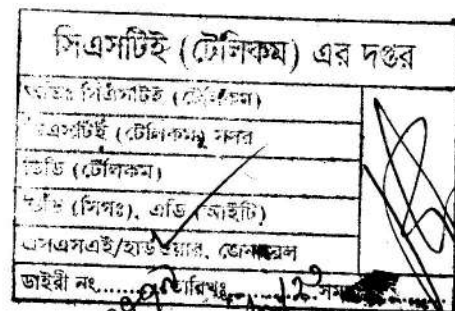 সিএসটিই (টেলিকম) এর দপ্তর
অতিঃ সিএসটিই (টেলিকম)
ডিএসটিই (টেলিকম) সদর
ডিডি (টেলিকম)
(সিগঃ), এডি (আইটি)
এসএসএই/হার্ডওয়্যার, জেনারেল
ডাইরী নং....... তারিখঃ.......... সময়